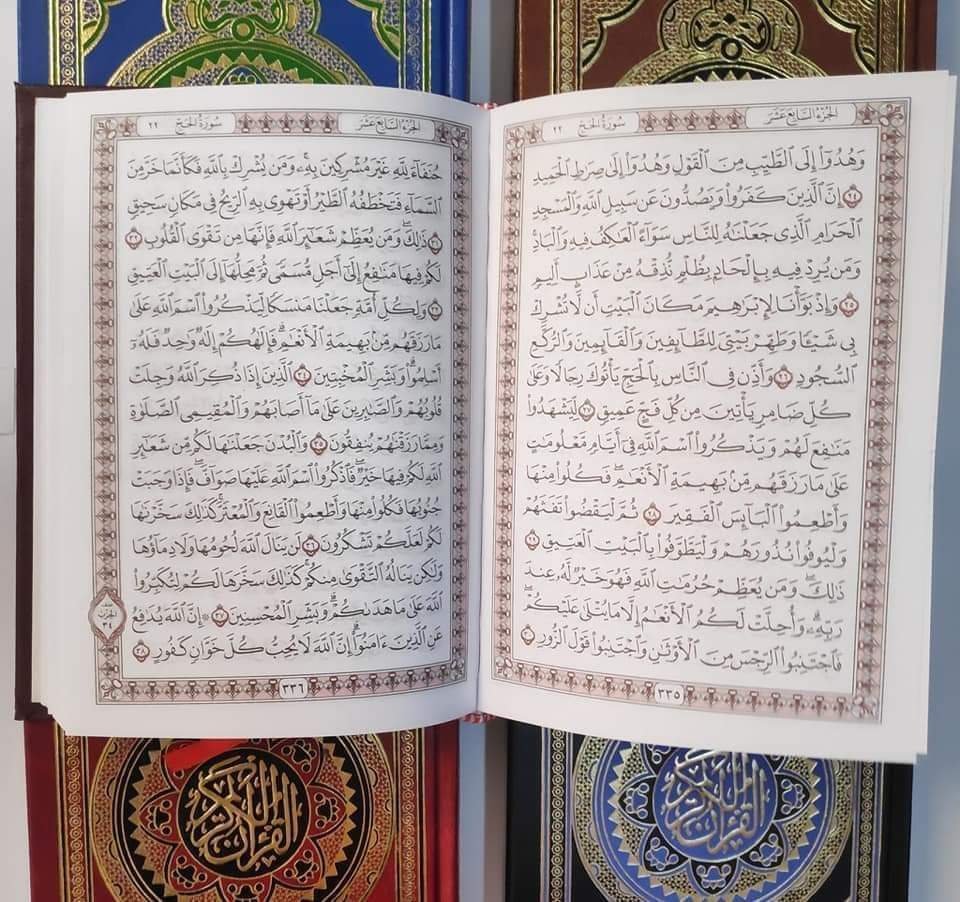 الجزء السابع عشر
سورة الحج
٢٢
وَهُدُوٓا۟ إِلَى ٱلطَّيِّبِ مِنَ ٱلْقَوْلِ وَهُدُوٓا۟ إِلَىٰ صِرَٰطِ ٱلْحَمِيدِ
٢٤ إِنَّ ٱلَّذِينَ كَفَرُوا۟ وَيَصُدُّونَ عَن سَبِيلِ ٱللَّهِ وَٱلْمَسْجِدِ
ٱلْحَرَامِ ٱلَّذِى جَعَلْنَٰهُ لِلنَّاسِ سَوَآءً ٱلْعَٰكِفُ فِيهِ وَٱلْبَادِ
وَمَن يُرِدْ فِيهِ بِإِلْحَادٍۭ بِظُلْمٍ نُّذِقْهُ مِنْ عَذَابٍ أَلِيمٍ
٢٥ وَإِذْ بَوَّأْنَا لِإِبْرَٰهِيمَ مَكَانَ ٱلْبَيْتِ أَن لَّا تُشْرِكْ
بِى شَيْـًٔا وَطَهِّرْ بَيْتِىَ لِلطَّآئِفِينَ وَٱلْقَآئِمِينَ وَٱلرُّكَّعِ
ٱلسُّجُودِ ٢٦ وَأَذِّن فِى ٱلنَّاسِ بِٱلْحَجِّ يَأْتُوكَ رِجَالًا وَعَلَىٰ
كُلِّ ضَامِرٍ يَأْتِينَ مِن كُلِّ فَجٍّ عَمِيقٍ ٢٧ لِّيَشْهَدُوا۟
مَنَٰفِعَ لَهُمْ وَيَذْكُرُوا۟ ٱسْمَ ٱللَّهِ فِىٓ أَيَّامٍ مَّعْلُومَٰتٍ
عَلَىٰ مَا رَزَقَهُم مِّنۢ بَهِيمَةِ ٱلْأَنْعَٰمِ ۖ فَكُلُوا۟ مِنْهَا
وَأَطْعِمُوا۟ ٱلْبَآئِسَ ٱلْفَقِيرَ ٢٨ ثُمَّ لْيَقْضُوا۟ تَفَثَهُمْ
وَلْيُوفُوا۟ نُذُورَهُمْ وَلْيَطَّوَّفُوا۟ بِٱلْبَيْتِ ٱلْعَتِيقِ ٢٩
ذَٰلِكَ وَمَن يُعَظِّمْ حُرُمَٰتِ ٱللَّهِ فَهُوَ خَيْرٌ لَّهُۥ عِندَ
رَبِّهِۦ ۗ وَأُحِلَّتْ لَكُمُ ٱلْأَنْعَٰمُ إِلَّا مَا يُتْلَىٰ عَلَيْكُمْ ۖ
فَٱجْتَنِبُوا۟ ٱلرِّجْسَ مِنَ ٱلْأَوْثَٰنِ وَٱجْتَنِبُوا۟ قَوْلَ ٱلزُّورِ ٣٠
٣٣٥
الجزء السابع عشر
سورة الحج
٢٢
حُنَفَآءَ لِلَّهِ غَيْرَ مُشْرِكِينَ بِهِۦ ۚ وَمَن يُشْرِكْ بِٱللَّهِ فَكَأَنَّمَا خَرَّ مِنَ
ٱلسَّمَآءِ فَتَخْطَفُهُ ٱلطَّيْرُ أَوْ تَهْوِى بِهِ ٱلرِّيحُ فِى مَكَانٍ سَحِيقٍ
٣١ ذَٰلِكَ وَمَن يُعَظِّمْ شَعَٰٓئِرَ ٱللَّهِ فَإِنَّهَا مِن تَقْوَى ٱلْقُلُوبِ ٣٢
لَكُمْ فِيهَا مَنَٰفِعُ إِلَىٰٓ أَجَلٍ مُّسَمًّى ثُمَّ مَحِلُّهَآ إِلَى ٱلْبَيْتِ ٱلْعَتِيقِ
٣٣ وَلِكُلِّ أُمَّةٍ جَعَلْنَا مَنسَكًا لِّيَذْكُرُوا۟ ٱسْمَ ٱللَّهِ عَلَىٰ
مَا رَزَقَهُم مِّنۢ بَهِيمَةِ ٱلْأَنْعَٰمِ ۗ فَإِلَٰهُكُمْ إِلَٰهٌ وَٰحِدٌ فَلَهُۥٓ
أَسْلِمُوا۟ ۗ وَبَشِّرِ ٱلْمُخْبِتِينَ ٣٤ ٱلَّذِينَ إِذَا ذُكِرَ ٱللَّهُ وَجِلَتْ
قُلُوبُهُمْ وَٱلصَّٰبِرِينَ عَلَىٰ مَآ أَصَابَهُمْ وَٱلْمُقِيمِى ٱلصَّلَوٰةِ
وَمِمَّا رَزَقْنَٰهُمْ يُنفِقُونَ ٣٥ وَٱلْبُدْنَ جَعَلْنَٰهَا لَكُم مِّن شَعَٰٓئِرِ
ٱللَّهِ لَكُمْ فِيهَا خَيْرٌ ۖ فَٱذْكُرُوا۟ ٱسْمَ ٱللَّهِ عَلَيْهَا صَوَآفَّ ۖ فَإِذَا وَجَبَتْ
جُنُوبُهَا فَكُلُوا۟ مِنْهَا وَأَطْعِمُوا۟ ٱلْقَانِعَ وَٱلْمُعْتَرَّ ۚ كَذَٰلِكَ سَخَّرْنَٰهَا
لَكُمْ لَعَلَّكُمْ تَشْكُرُونَ ٣٦ لَن يَنَالَ ٱللَّهَ لُحُومُهَا وَلَا دِمَآؤُهَا
وَلَٰكِن يَنَالُهُ ٱلتَّقْوَىٰ مِنكُمْ ۚ كَذَٰلِكَ سَخَّرَهَا لَكُمْ لِتُكَبِّرُوا۟
ٱللَّهَ عَلَىٰ مَا هَدَىٰكُمْ ۗ وَبَشِّرِ ٱلْمُحْسِنِينَ ٣٧ ۞ إِنَّ ٱللَّهَ يُدَٰفِعُ
عَنِ ٱلَّذِينَ ءَامَنُوٓا۟ ۗ إِنَّ ٱللَّهَ لَا يُحِبُّ كُلَّ خَوَّانٍ كَفُورٍ ٣٨
٣٣٦
القرآن الكريم
القرآن الكريم